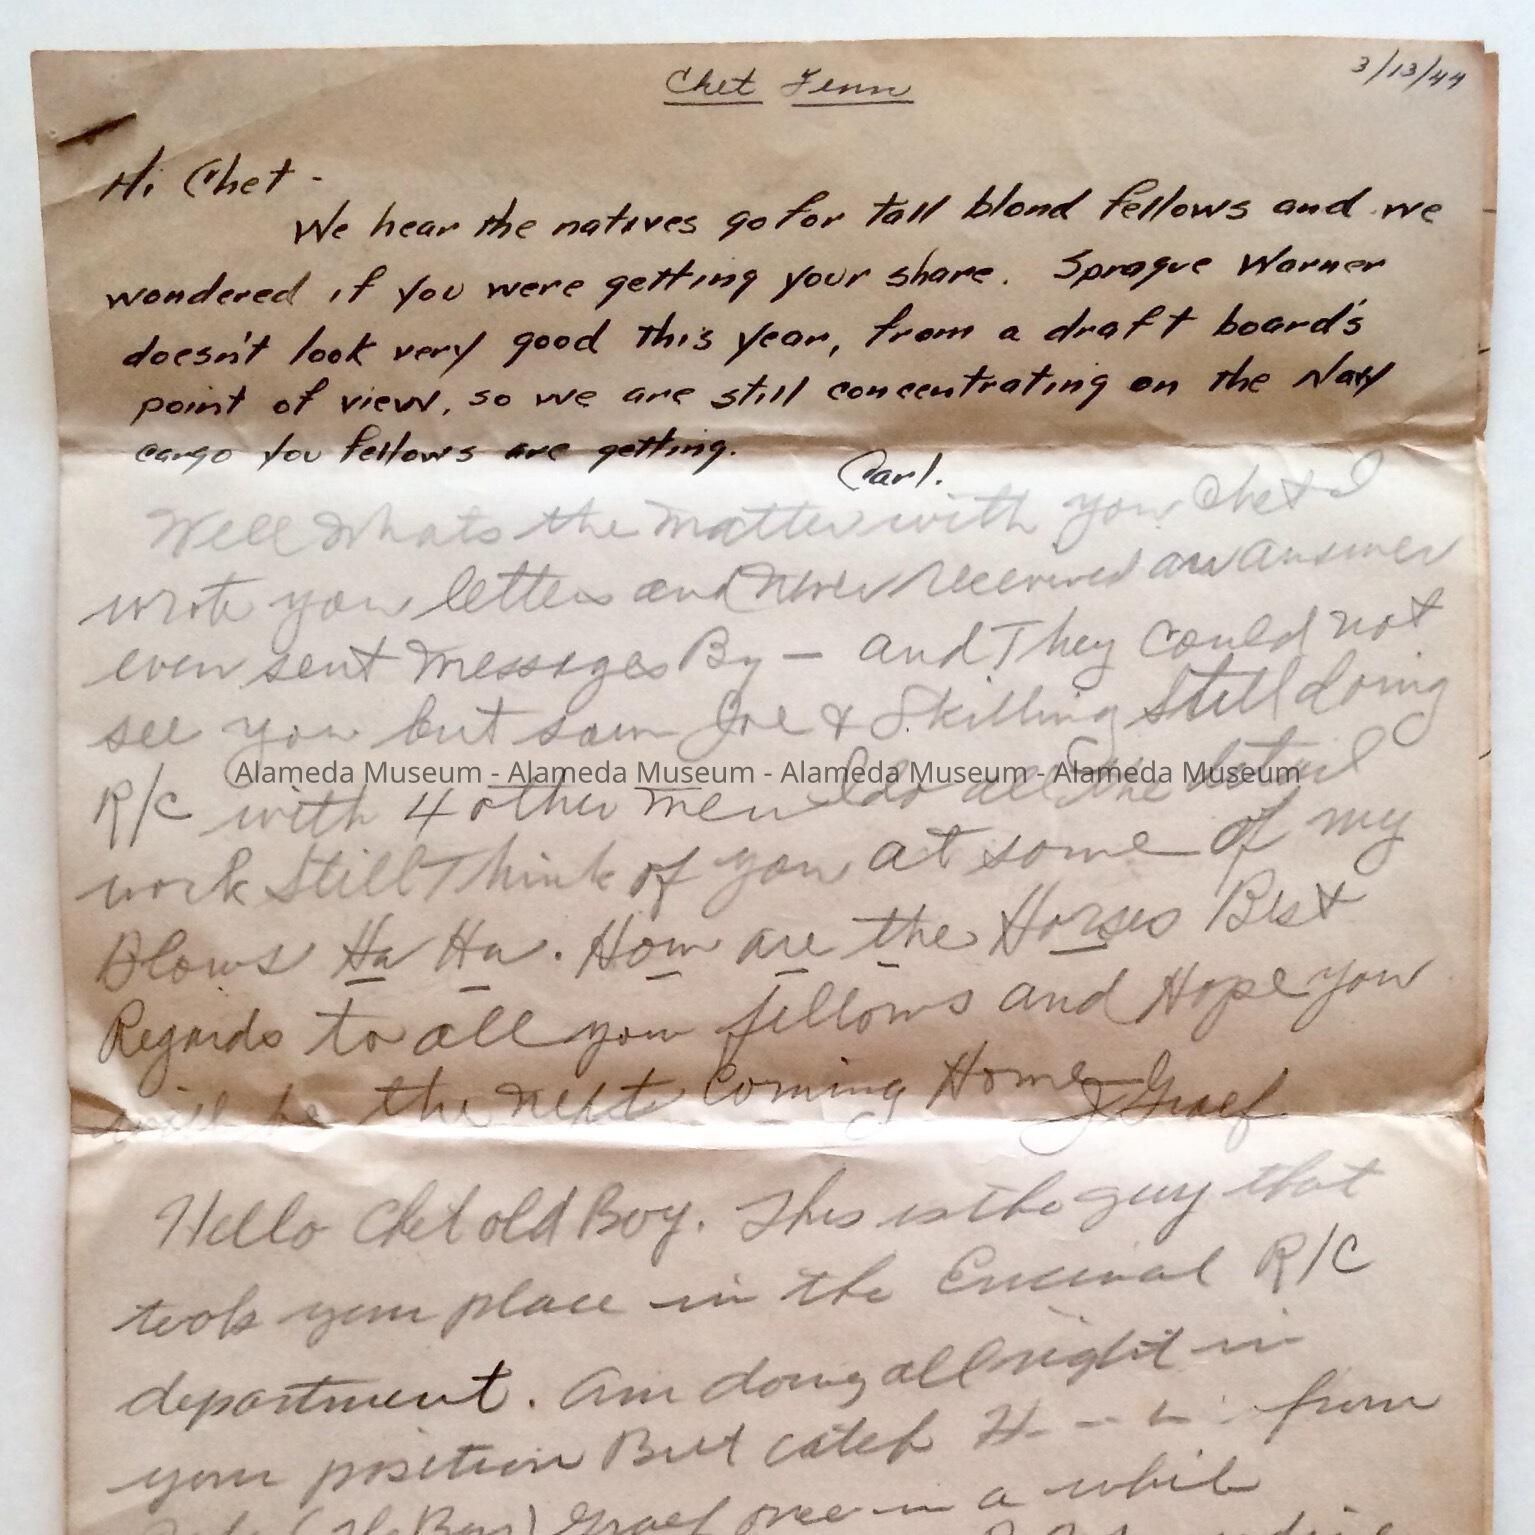 Chet Fenn
3/13/44
Hi Chet -
We hear the natives go for tall blond fellows and we
wondered if you were getting your share. Sprague Warner
doesn't look very good this year, from a draft board's
point of view, so we are still concentrating on the Navy
cargo you fellows are getting.
Carl.
Well Whats the Matter with you Chet I
wrote you letters and Never Received an answer
even sent Messages By — and They Could not
see you but saw Joe & Skilling Still doing
R/C with 4 other men I do all the detail
Alameda Museum - Alameda Museum - Alameda Museum - Alameda Museum
work Still Think of you at some of my
Blows Ha Ha. How are the Horses Best
Regards to all you fellows and Hope you
will be the Next Coming Home J Graef
Hello Chet old Boy. This is the guy that
took your place in the Encinal R/C
department. Am doing allright in
your position But catch H - - L from
Graef once in a while